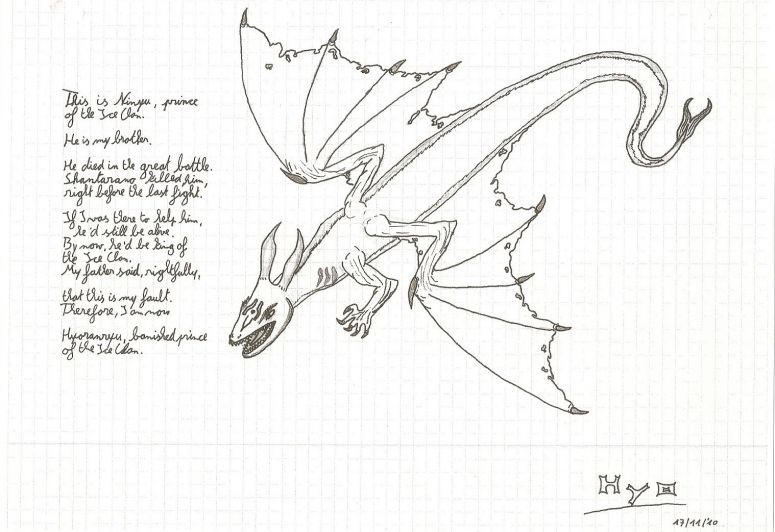 This is Ninyu, prince
of the Ice Clan.
He is my brother.
He died in the great battle.
Shantarano killed him,
right before the last fight.
If I was there to help him,
he'd still be alive.
By now, he'd be king of
the Ice Clan.
My father said, rightfully,
that this is my fault.
Therefore, I am now
Hyoranryu, banished prince
of the Ice Clan.
Hyo
17/11/10